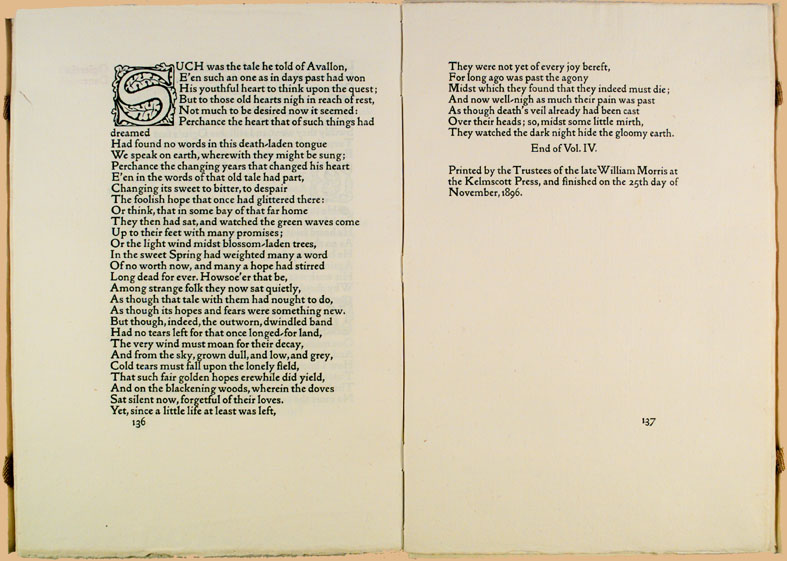 SUCH was the tale he told of Avallon,
E'en such an one as in days past had won
His youthful heart to think upon the quest;
But to those old hearts nigh in reach of rest,
Not much to be desired now it seemed:
Perchance the heart that of such things had
dreamed
Had found no words in this death-laden tongue
We speak on earth, wherewith they might be sung;
Perchance the changing years that changed his heart
E'en in the words of that old tale had part,
Changing its sweet to bitter, to despair
The foolish hope that once had glittered there:
Or think, that in some bay of that far home
They then had sat, and watched the green waves come
Up to their feet with many promises;
Or the light wind midst blossom-laden trees,
In the sweet Spring had weighted many a word
Of no worth now, and many a hope had stirred
Long dead for ever. Howsoe'er that be,
Among strange folk they now sat quietly,
As though that tale with them had nought to do,
As though its hopes and fears were something new.
But though, indeed, the outworn, dwindled band
Had no tears left for that once longed-for land,
The very wind must moan for their decay,
And from the sky, grown dull, and low, and grey,
Cold tears must fall upon the lonely field,
That such fair golden hopes erewhile did yield,
And on the blackening woods, wherein the doves
Sat silent now, forgetful of their loves.
Yet, since a little life at least was left,
136
They were not yet of every joy bereft,
For long ago was past the agony
Midst which they found that they indeed must die;
And now well-nigh as much their pain was past
As though death's veil already had been cast
Over their heads; so, midst some little mirth,
They watched the dark night hide the gloomy earth.
End of Vol. IV.
Printed by the Trustees of the late William Morris at
the Kelmscott Press, and finished on the 25th day of
November, 1896.
137